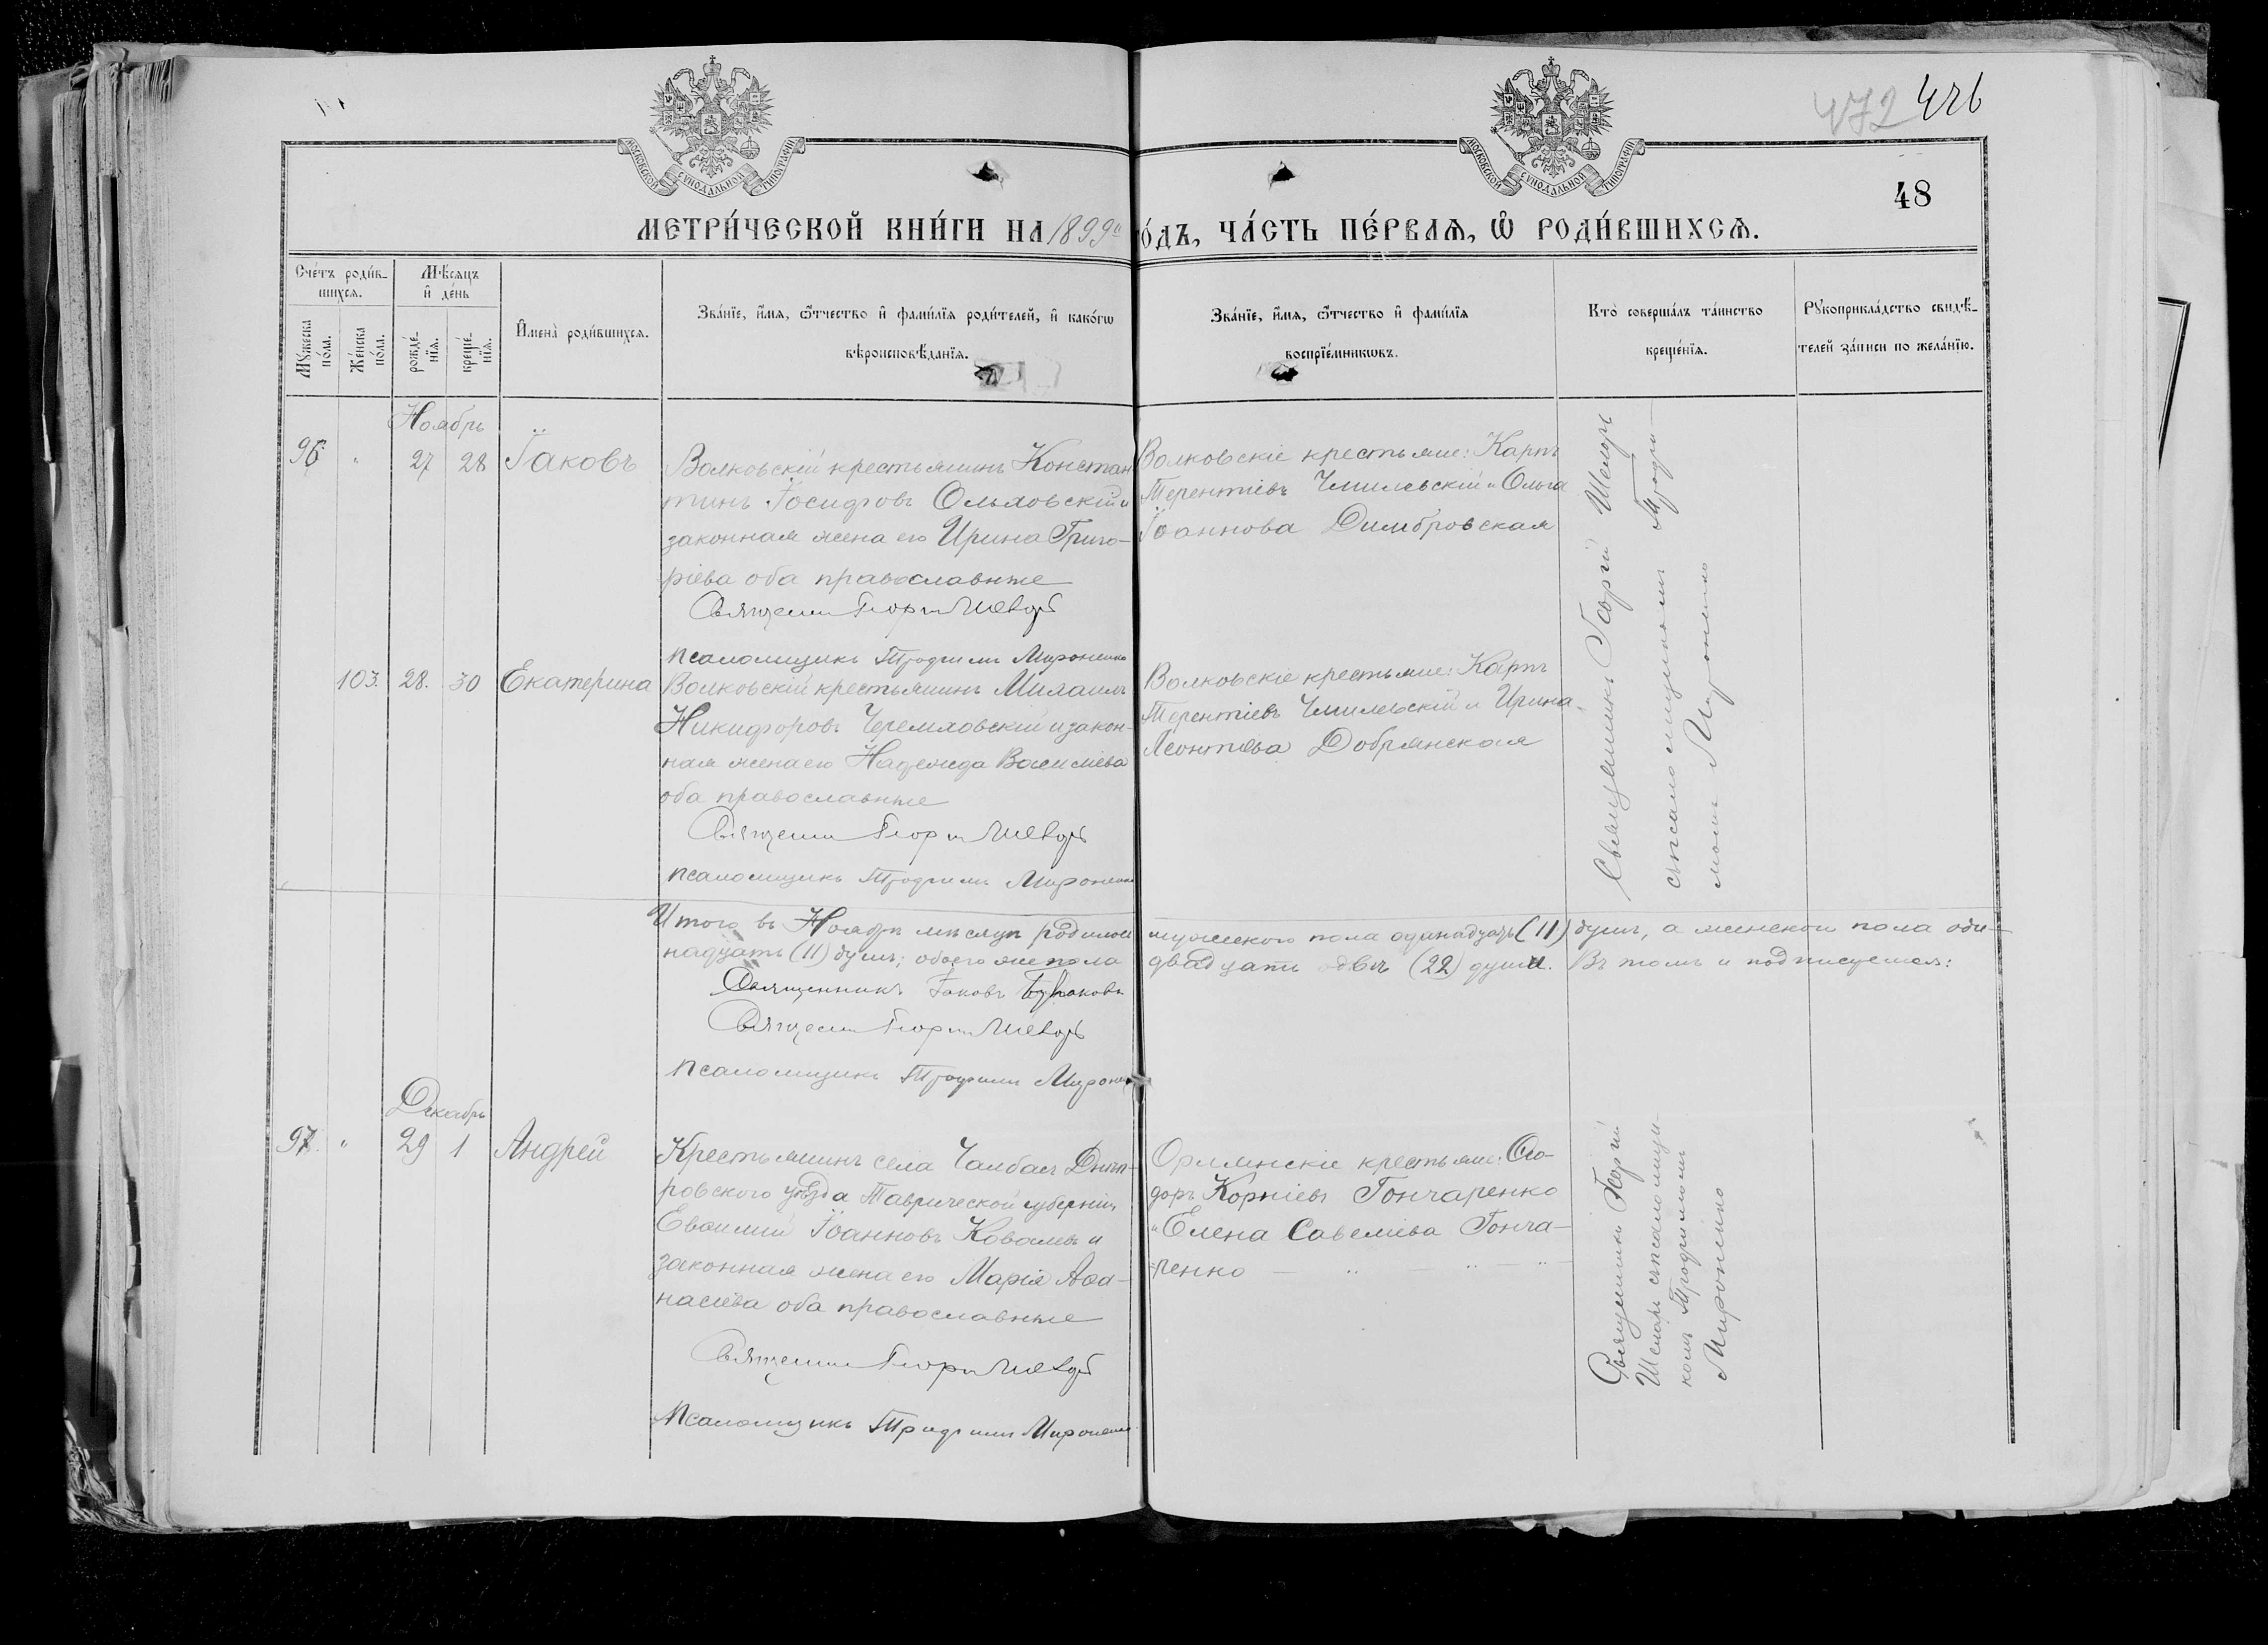 472 426
МОСКОВСКОЙ СУНОДАЛЬНОЙ ТИПОГРАФІИ
МОСКОВСКОЙ СУНОДАЛЬНОЙ ТИПОГРАФІИ
48
МЕТРИ́ЧЕСКОЙ КНИ́ГИ НА 1899 го́дъ, ЧА́СТЬ ПЕ́РВАѦ, Ѽ РОДИ́ВШИХСѦ.
Сче́тъ роди́в-
шихсѧ.
Мꙋ́жеска
по́ла.
Же́нска
по́ла.
Мѣ́сѧцъ
и҆ де́нь
рожде́-
нїѧ.
креще́-
нїѧ.
И҆мена̀ роди́вшихсѧ.
Зва́нїе, и҆́мѧ, ѻ҆́тчество и҆ фами́лїѧ роди́телей, и҆ како́гѡ
вѣроисповѣ́данїѧ.
Зва́нїе, и҆́мѧ, ѻ҆́тчество и҆ фами́лїѧ
воспрїе́мникѡвъ.
Кто̀ соверша́лъ та́инство
креще́нїѧ.
Рꙋкоприкла́дство свидѣ́-
телей за́писи по жела́нїю.
Ноябрь
96. " 27 28 Іаковъ
Волковскій крестьянинъ Констан
тинъ Іосифовъ Ольховскій и
законная жена его Ирина Григо-
ріева оба православные
Священникъ Георгій
Псаломщикъ Трофимъ Мироненко
Волковскіе крестьяне: Карпъ
Терентіевъ Чмилевскій и Ольга
Іоаннова Димбровская
Священникъ Георгій
съ псаломщикомъ Трофи-
момъ Мироненко
103. 28. 30 Екатерина
Волковскій крестьянинъ Михаилъ
Никифоровъ Черемховскій и закон-
ная жена его Надежда Василіева
оба православные
Священникъ Георгій
Псаломщикъ Трофимъ Мироненко
Волковскіе крестьяне: Карпъ
Терентіевъ Чмилевскій и Ирина
Леонтіева Добрянская
Итого въ Ноябрѣ мѣсяцѣ родилось мужескаго пола одинадцать (11) душъ, а женскаго пола оди-
надцать (11) душъ; обоего же пола двадцать двѣ (22) души. Въ томъ и подписуемся:
Священникъ Іаковъ
Священникъ Георгій
Псаломщикъ Трофимъ Мироненко
Декабрь
97. " 29 1 Андрей
Крестьянинъ села Чалбасъ Днѣп-
ровскаго уѣзда Таврической губерніи
Евѳимій Іоанновъ Ковалевъ и
законная жена его Марія Аѳа-
насіева оба православные
Священникъ Георгій
Псаломщикъ Трофимъ Мироненко
Орлянскіе крестьяне: Ѳео-
доръ Корніевъ Гончаренко
и Елена Савеліева Гонча-
ренко
Священникъ Георгій
съ псаломщи-
комъ Трофимомъ
Мироненко